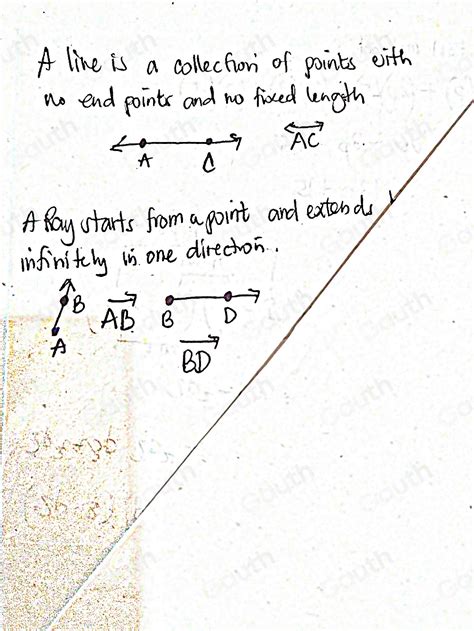 A line is a collection of points with
no end points and no fixed length
A C
AC
A Ray starts from a point and extends
infinitely in one direction.
B AB B D
A
BD